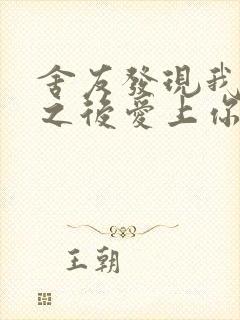 舍友發現我
之後愛上你
王朝